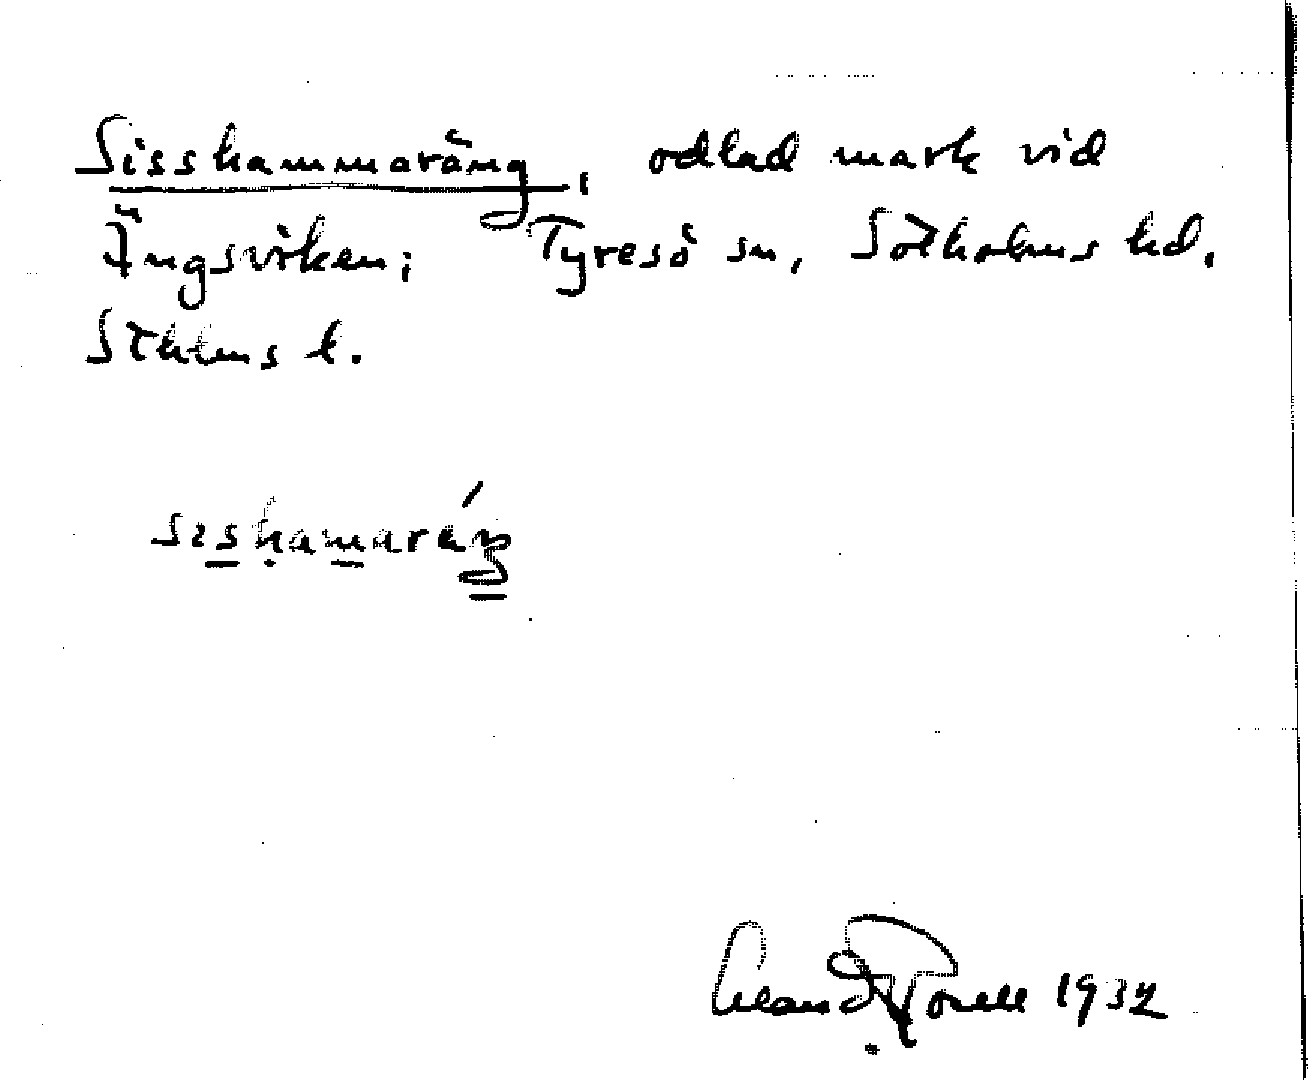 Sisshammaräng, odlad mark vid
Ängsviken; Tyresö sn, Sotholms hd,
Sthlms l.
sɪshamaráŋ
1932